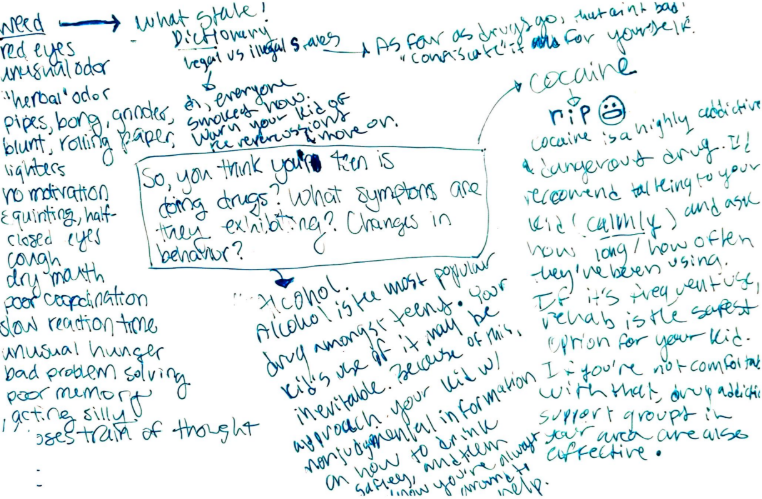 weed
red eyes
unusual odor
"herbal" odor
pipes, bong, grinder,
blunt, rolling paper,
lighters
no motivation
squinting, half-
closed eyes
cough
dry mouth
poor coordination
slow reaction time
unusual hunger
bad problem solving
poor memory
acting silly
oses train of thought
-
-
What state?
Dictionary
legal vs illegal states
eh, everyone
smokes now.
Warn your kid of
the repercussions
& move on.
As far as drugs go, that aint bad!
"confiscate" it for yourself.
So, you think your teen is
doing drugs? What symptoms are
they exhibiting? Changes in
behavior?
Alcohol.
Alcohol is the most popular
drug amongst teens. Your
kid's use of it may be
inevitable. Because of this,
approach your kid w/
nonjudgmental information
on how to drink
safley, and them
know you're always
around to
help.
cocaine
rip
cocaine is a highly addictive
& dangerous drug. I'd
reccomend talking to your
kid (calmly) and ask
how long/how often
they've been using.
If it's frequent use,
rehab is the safest
option for your kid.
If you're not comfortab
with that, drug addictio
support groups in
your area are also
effective.